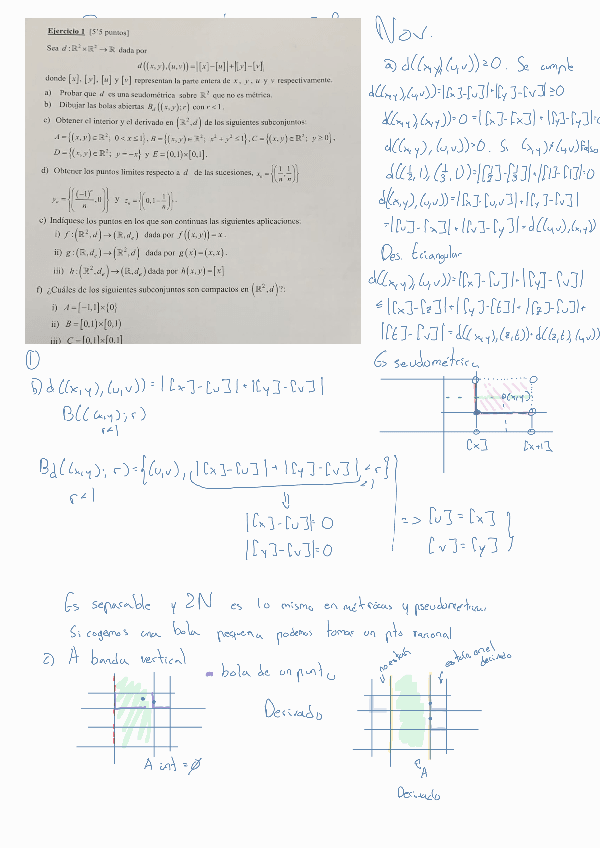 Ejercicio 1 [5'5 puntos]
Sea d:ℝ²×ℝ²→ℝ dada por
d((x,y),(u,v))=|[x]−[u]|+|[y]−[v]|
donde [x], [y], [u] y [v] representan la parte entera de x, y, u y v respectivamente.
a) Probar que d es una seudométrica sobre ℝ² que no es métrica.
b) Dibujar las bolas abiertas B_d((x,y);r) con r<1.
c) Obtener el interior y el derivado en (ℝ²,d) de los siguientes subconjuntos:
A={(x,y)∈ℝ²; 0<x≤1}, B={(x,y)∈ℝ²; x²+y²≤1}, C={(x,y)∈ℝ²; y≥0},
D={(x,y)∈ℝ²; y=−x} y E=[0,1)×[0,1).
d) Obtener los puntos límites respecto a d de las sucesiones, x_n={(1/n,1/n)},
y_n={((−1)ⁿ/n,0)} y z_n={(0,1−1/n)}.
e) Indíquese los puntos en los que son continuas las siguientes aplicaciones.
i) f:(ℝ²,d)→(ℝ,d_e) dada por f((x,y))=x.
ii) g:(ℝ,d_e)→(ℝ²,d) dada por g(x)=(x,x).
iii) h:(ℝ²,d_e)→(ℝ,d_e) dada por h(x,y)=[x]
f) ¿Cuáles de los siguientes subconjuntos son compactos en (ℝ²,d)?:
i) A=[−1,1]×{0}
ii) B=[0,1)×[0,1)
iii) C=[0,1]×[0,1]
Nov.
a) d((x,y),(u,v))≥0. Se cumple
d((x,y),(u,v))=|[x]-[u]|+|[y]-[v]|≥0
d((x,y),(x,y))=0=|[x]-[x]|+|[y]-[y]|=0
d((x,y),(u,v))>0. Si (x,y)≠(u,v) Falso
d((1/2,1),(1/3,1))=|[1/2]-[1/3]|+|[1]-[1]|=0
d((x,y),(u,v))=|[x]-[u]|+|[y]-[v]|
=|[u]-[x]|+|[v]-[y]|=d((u,v),(x,y))
Des. triangular
d((x,y),(u,v))=|[x]-[u]|+|[y]-[v]|
≤|[x]-[z]|+|[y]-[t]|+|[z]-[u]|+
|[t]-[v]|=d((x,y),(z,t))+d((z,t),(u,v))
Es seudométrica
①
b) d((x,y),(u,v))=|[x]-[u]|+|[y]-[v]|
B((x,y);r)
r<1
(x,y)
[x] [x+1]
Bd((x,y);r)={(u,v), |[x]-[u]|+|[y]-[v]|<r}
r<1
<1
⇓
|[x]-[u]|=0
|[y]-[v]|=0
=> [u]=[x]
[v]=[y]
Es separable y 2N es lo mismo en métricas y pseudométricas
Si cogemos una bola pequeña podemos tomar un pto racional
c) A banda vertical
bola de un punto
A int = ∅
Derivado
no están
están en el derivado
A
Derivado